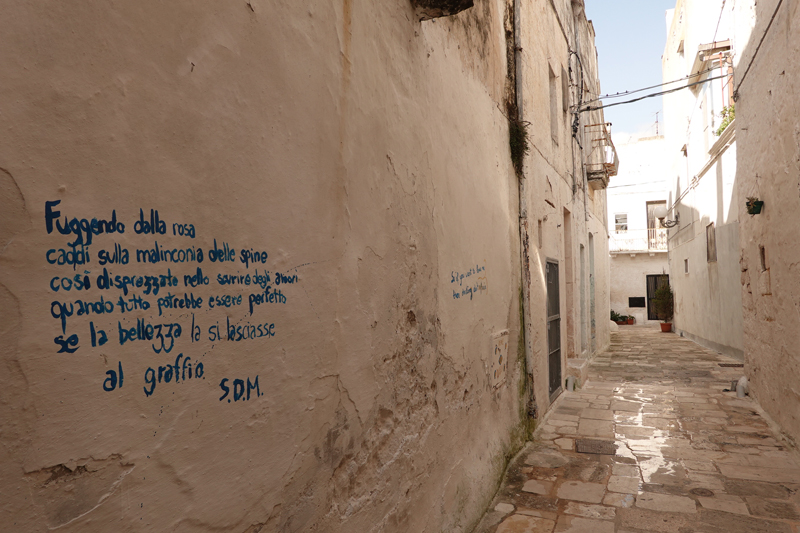 Fuggendo dalla rosa
caddi sulla malinconia delle spine
così disprezzate nello svanire degli amori
quando tutto potrebbe essere perfetto
se la bellezza la si lasciasse
al graffio.
S.D.M.